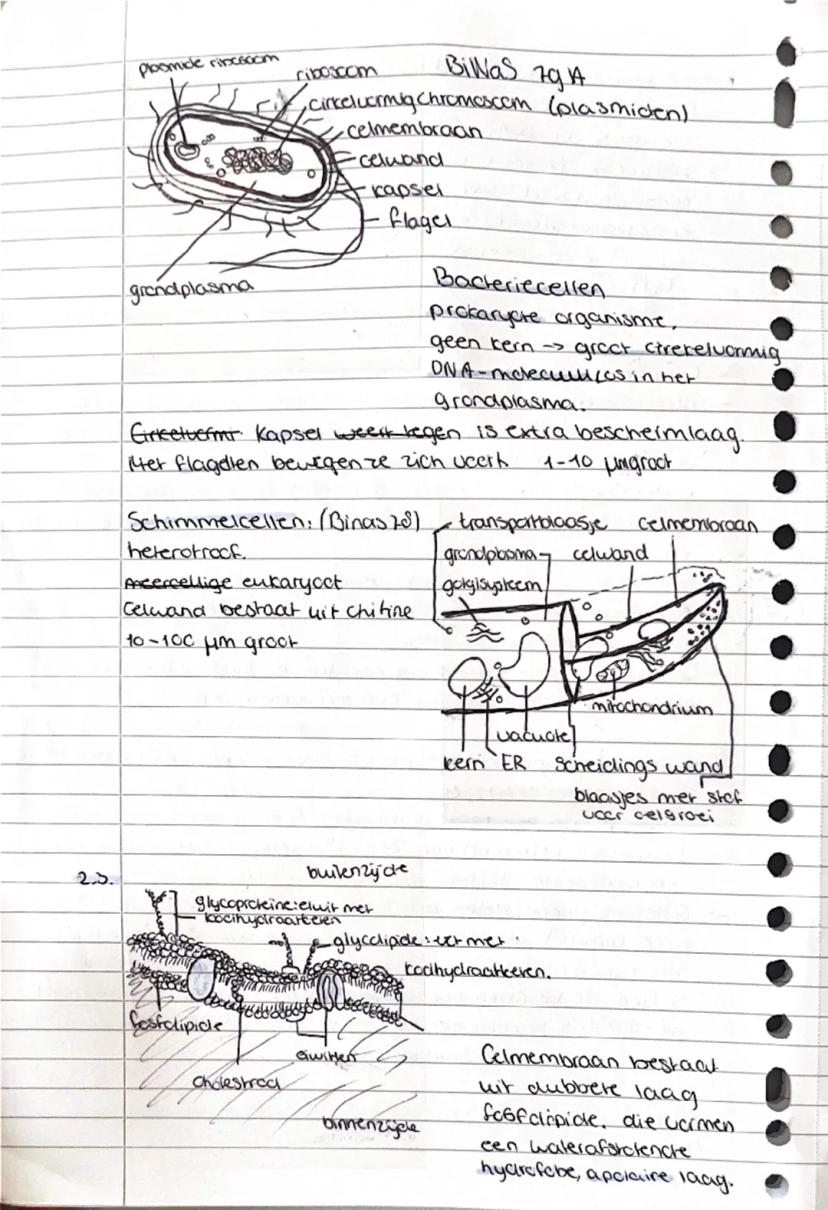 plasmide ribosoom
ribosoom
BiNaS 79A
cirkelvormig chromosoom (plasmiden)
celmembraan
celwand
kapsel
flagel
grondplasma
Bacteriecellen
prokaryote organisme,
geen kern -> groot cirkelvormig
DNA-molecuul los in het
grondplasma.
Cirkelvormi Kapsel weert tegen is extra beschermlaag.
Met flagellen bewegen ze zich voort 1-10 µm groot
Schimmelcellen: (Binas 78)
heterotroof.
meercellige eukaryoot
Celwand bestaat uit chitine
10-100 µm groot
transportblaasje celmembraan
grondplasma celwand
golgisysteem
mitochondrium
vacuole
kern ER scheidings wand
blaasjes met stof
voor celgroei
2.3.
buitenzijde
glycoproteine: eiwit met
koolhydraatketen
glycolipide: vet met
koolhydraatketen.
fosfolipide
eiwitten
cholestrool
binnenzijde
Celmembraan bestaat
uit dubbele laag
fosfolipide. die vormen
een waterafstotende
hydrofobe, apolaire laag.